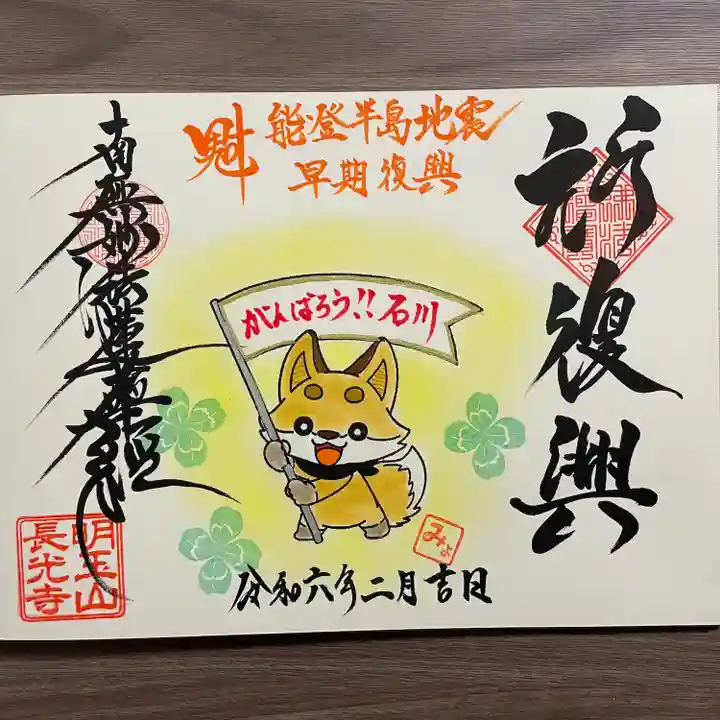 祈復興
魁
能登半島地震
早期復興
がんばろう!!石川
南無妙法蓮華経
令和六年二月吉日
みよ
明王山
長光寺